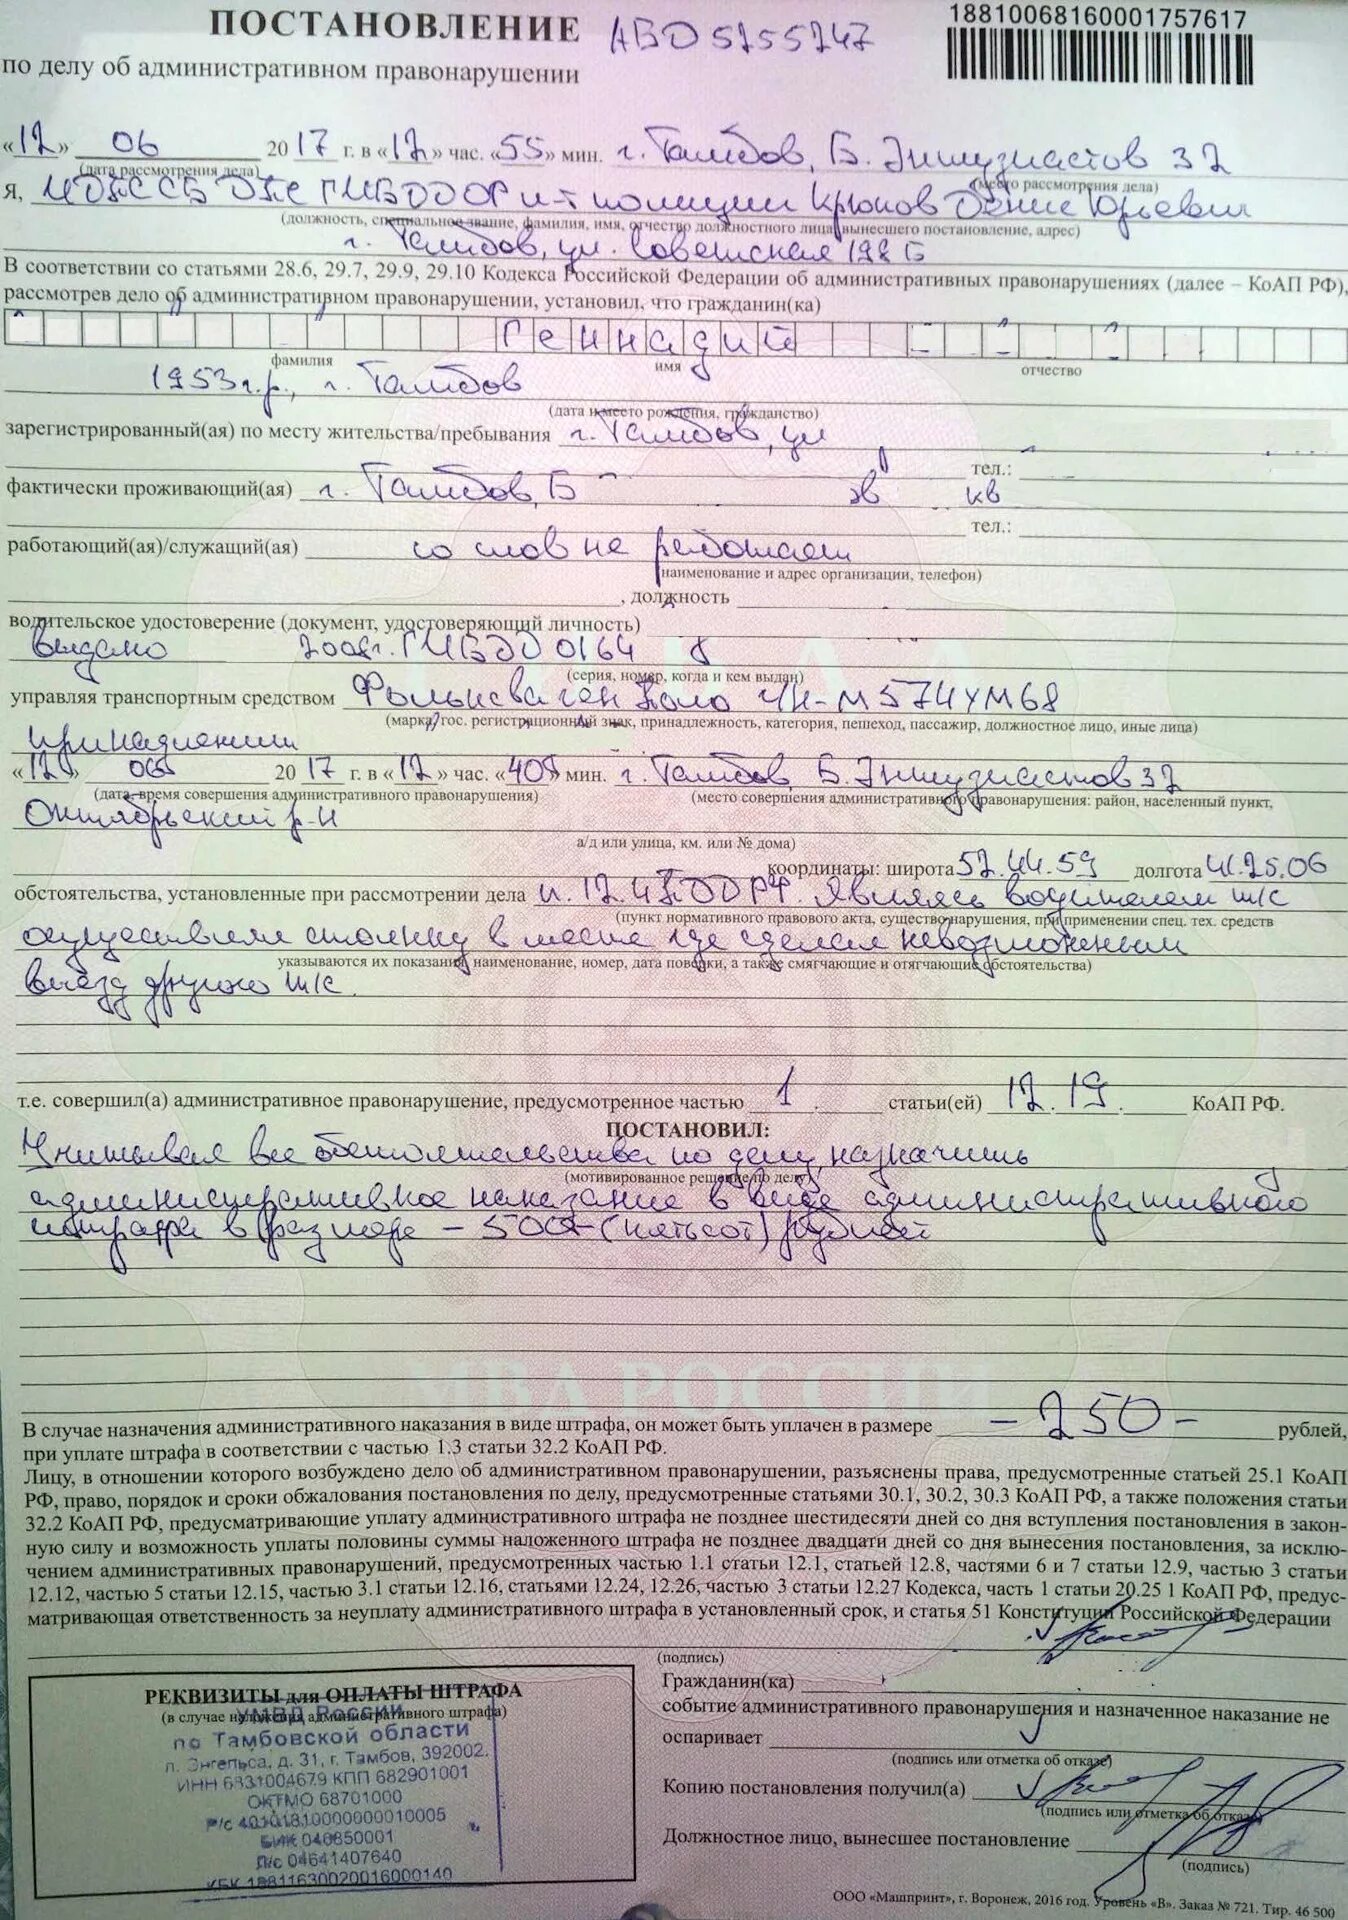 ПОСТАНОВЛЕНИЕ
18810068160001757617
по делу об административном правонарушении
«12» 06 2017 г. в «12» час. «55» мин. г. Тамбов, Б. Энтузиастов 32
(дата рассмотрения дела) (место рассмотрения дела)
Я, ГИБДД и-т полиции Крюков Денис Юрьевич
(должность, специальное звание, фамилия, имя, отчество должностного лица, вынесшего постановление, адрес)
г. Тамбов, ул. Советская 198 Б
В соответствии со статьями 28.6, 29.7, 29.9, 29.10 Кодекса Российской Федерации об административных правонарушениях (далее – КоАП РФ),
рассмотрев дело об административном правонарушении, установил, что гражданин(ка)
Геннадий
фамилия имя отчество
1953 г.р., г. Тамбов
(дата и место рождения, гражданство)
зарегистрированный(ая) по месту жительства/пребывания г. Тамбов, ул
тел.:
фактически проживающий(ая) г. Тамбов, Б кв
тел.:
работающий(ая)/служащий(ая) со слов не работает
(наименование и адрес организации, телефон)
, должность
водительское удостоверение (документ, удостоверяющий личность)
выдано 2008г. ГИБДД 0164
(серия, номер, когда и кем выдан)
управляя транспортным средством Фольксваген Поло М574УМ68
(марка, гос. регистрационный знак, принадлежность, категория, пешеход, пассажир, должностное лицо, иные лица)
«12» 06 2017 г. в «12» час. «40» мин. г. Тамбов, Б. Энтузиастов 32
(дата, время совершения административного правонарушения) (место совершения административного правонарушения: район, населенный пункт,
Октябрьский р-н
а/д или улица, км. или № дома)
координаты: широта 52.44.59 долгота 41.25.06
обстоятельства, установленные при рассмотрении дела п. 12.4 ПДД РФ. Являясь водителем т/с
(пункт нормативного правового акта, существо нарушения, при применении спец. тех. средств
осуществил стоянку в месте где сделал невозможным
указываются их показания, наименование, номер, дата поверки, а также смягчающие и отягчающие обстоятельства)
выезд других т/с.
т.е. совершил(а) административное правонарушение, предусмотренное частью 1 статьи(ей) 12.19 КоАП РФ.
ПОСТАНОВИЛ:
Учитывая все обстоятельства по делу, назначить
(мотивированное решение по делу)
административное наказание в виде административного
штрафа в размере – 500 – (пятьсот) рублей
МВД РОССИИ
В случае назначения административного наказания в виде штрафа, он может быть уплачен в размере – 250 – рублей,
при уплате штрафа в соответствии с частью 1.3 статьи 32.2 КоАП РФ.
Лицу, в отношении которого возбуждено дело об административном правонарушении, разъяснены права, предусмотренные статьей 25.1 КоАП
РФ, право, порядок и сроки обжалования постановления по делу, предусмотренные статьями 30.1, 30.2, 30.3 КоАП РФ, а также положения статьи
32.2 КоАП РФ, предусматривающие уплату административного штрафа не позднее шестидесяти дней со дня вступления постановления в закон-
ную силу и возможность уплаты половины суммы наложенного штрафа не позднее двадцати дней со дня вынесения постановления, за исклю-
чением административных правонарушений, предусмотренных частью 1.1 статьи 12.1, статьей 12.8, частями 6 и 7 статьи 12.9, частью 3 статьи
12.12, частью 5 статьи 12.15, частью 3.1 статьи 12.16, статьями 12.24, 12.26, частью 3 статьи 12.27 Кодекса, часть 1 статьи 20.25 1 КоАП РФ, предус-
матривающая ответственность за неуплату административного штрафа в установленный срок, и статья 51 Конституции Российской Федерации
(подпись)
РЕКВИЗИТЫ для ОПЛАТЫ ШТРАФА
(в случае наложения административного штрафа)
УМВД России
по Тамбовской области
л. Энгельса, д. 31, г. Тамбов, 392002.
ИНН 6831004679 КПП 682901001
ОКТМО 68701000
Р/с 40101810000000010005
БИК 046850001
Л/с 04641407640
КБК 18811630020016000140
Гражданин(ка)
событие административного правонарушения и назначенное наказание не
оспаривает
(подпись или отметка об отказе)
Копию постановления получил(а)
(подпись или отметка об отказе)
Должностное лицо, вынесшее постановление
(подпись)
ООО «Машпринт», г. Воронеж, 2016 год. Уровень «В». Заказ № 721. Тир. 46 500